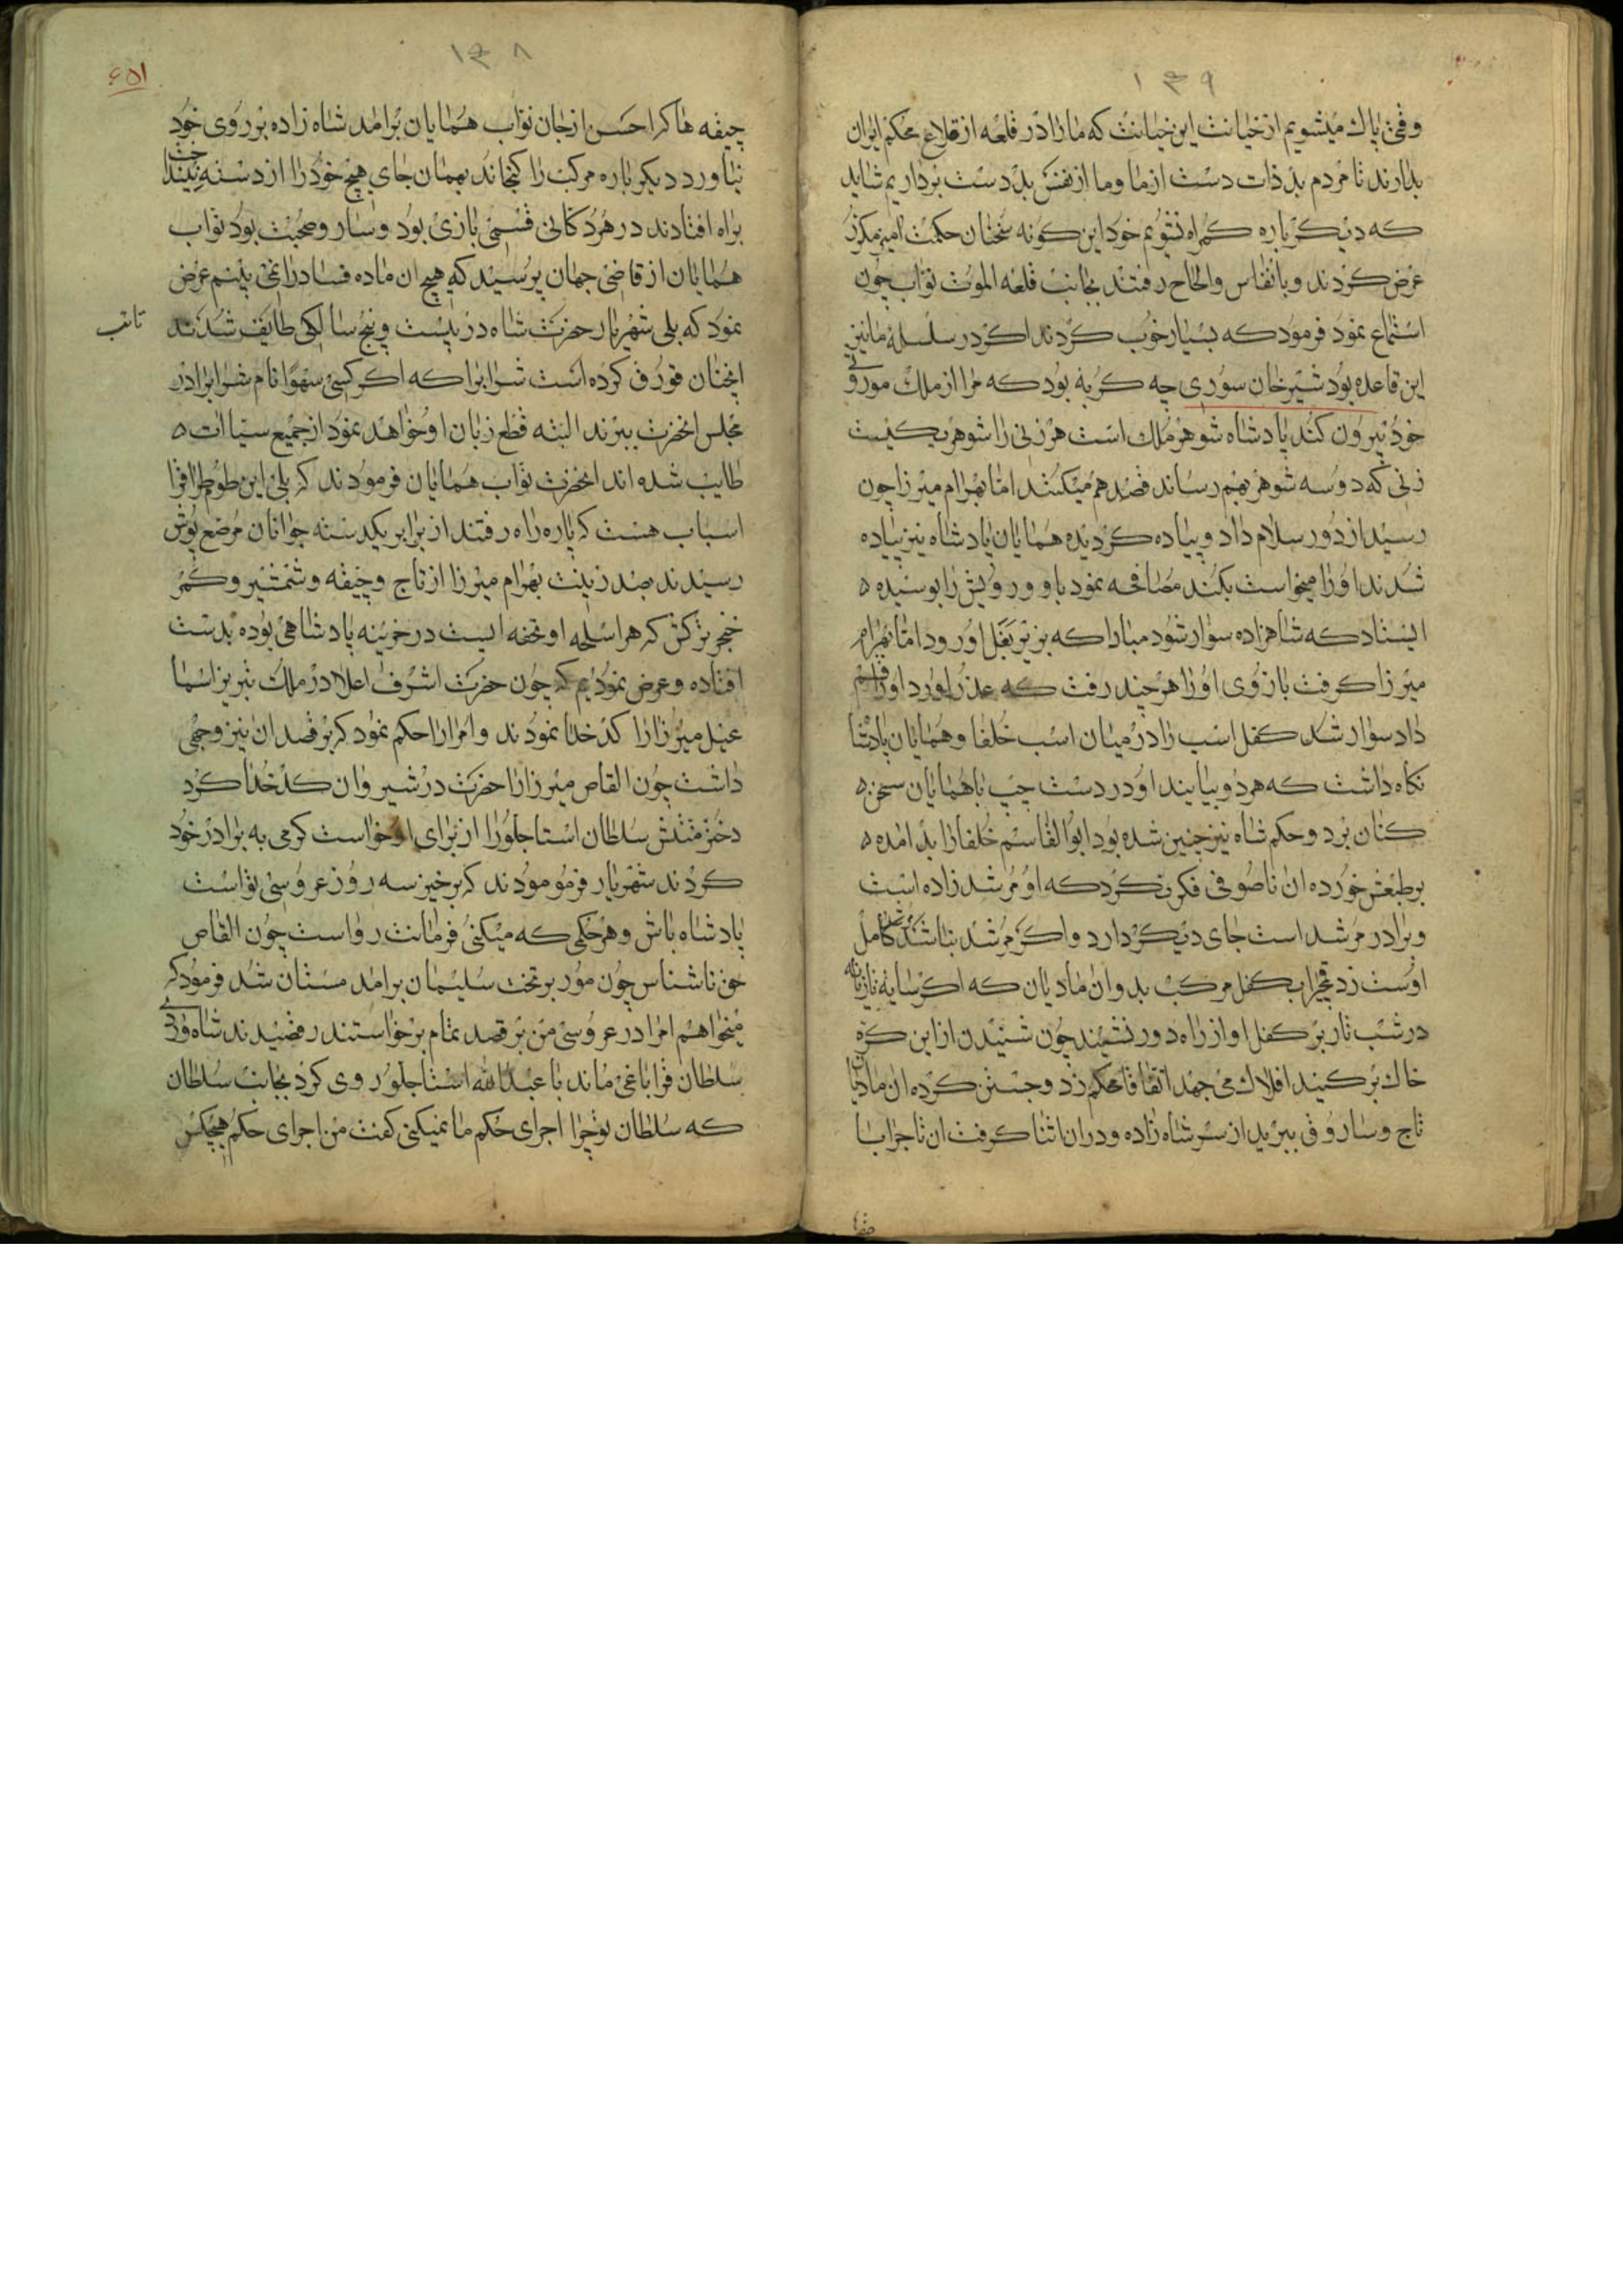 ۱۳۹
وقتی پاك میشویم از خیانت این خیانت که ما را در قلعه از قلاع محکم ایران
بدارند تا مردم بد ذات دست از ما و ما از نفس بد دست برداریم شاید
که دیکر باره کمراه نشویم خود این کونه سخنان حکمت امیز مکرر
عرض کردند و بانفاس و الحاح رفتند بجانب قلعه الموت نواب چون
استماع نمود فرمود که بسیار خوب کردند اکر در سلسله ما نیز
این قاعده بود شیرخان سوری چه کربه بود که مرا از ملك موروثی
خود بیرون کند پادشاه شوهر ملك است هر زنی را شوهر یکیست
زنی که دو سه شوهر بهم رساند قصد هم میکنند اما بهرام میرزا چون
رسید از دور سلام داد و پیاده کردیده همایان پادشاه نیز پیاده
شدند او را میخواست بکند مصافحه نمود با او و رویش را بوسیده
ایستاد که شاهزاده سوار شود مبادا که بزیر بغل او رود اما بهرام
میرزا کرفت بازوی او را هر چند رفت که عذر اورد او را قسم
داد سوار شد کفل اسب را در میان اسب خلفا و همایان پادشا
نکاه داشت که هر دو بیایند او در دست چپ با همایان سخن
کنان برد و حکم شاه نیز چنین شده بود ابوالقاسم خلفا را بد امده
بر طبعش خورده ان ناصوفی فکر نکرد که او مرشد زاده است
و برادر مرشد است جای دیکر دارد و اکر مرشد نباشد کامل
اوست زد قمچی را بکفل مرکب بد و ان مادیان که اکر سایه تازیانه
در شب تار بر کفل او از راه دور نشیند چون شنیدن از این کره
خاك بر کنبد افلاك می جهد اتفاقا محکم زد و جستن کرده ان مادیان
تاج و سارو ق بپرید از سر شاه زاده و در ان اثنا کرفت ان تاج را با
۱۳۸
۶۵۱
جیفه ها که احسن از جان نواب همایان برامد شاه زاده بر روی خود
نیاورد دیکر باره مرکب را کنجاند بهمان جای هیچ خود را از دست نینداخت
براه افتادند در هر دکانی قسمی بازی بود و ساز و صحبت بود نواب
همایان از قاضی جهان پرسید که هیچ ان ماده فساد را نمی بینم عرض
نمود که بلی شهریار حضرت شاه در بیست و پنج سالکی طایف شدند
تایب
انچنان قورق کرده است شراب را که اکر کسی سهوا نام شراب را در
مجلس انحضرت ببرند البته قطع زبان او خواهد نمود از جمیع سیاات
طالب شده اند انحضرت نواب همایان فرمودند که بلی این طومطراقرا
اسباب هست که پاره راه رفتند از برابر یکدسته جوانان مرصع پوش
رسیدند بصد زینت بهرام میرزا از تاج و جیفه و شمشیر و کمر
خنجر ترکش که هر اسلحه او تحفه ایست در خزینه پادشاهی بوده بدست
افتاده و عرض نمودیم که چون حضرت اشرف اعلا در ملك تبریز اسما
عیل میرزا را کدخدا نمودند و امرا را حکم نمود که برقصد ان نیز وجهی
داشت چون القاص میرزا را حضرت در شیروان کدخدا کرد
دختر منتش سلطان استاجلو را از برای او خواست کرمی به برادر خود
کردند شهریار فرمو مودند که برخیز سه روز عروسی تواست
پادشاه باش و هر حکمی که میکنی فرمانت رواست چون القاص
حق ناشناس چون مور بر تخت سلیمان برامد مستان شد فرمود که
میخواهم امرا در عروسی من برقصد تمام برخواستند رقصیدند شاه وردی
سلطان قراباغی ماند با عبدالله استاجلو روی کرد بجانب سلطان
که سلطان تو چرا اجرای حکم ما نمیکنی کفت من اجرای حکم هیچکس